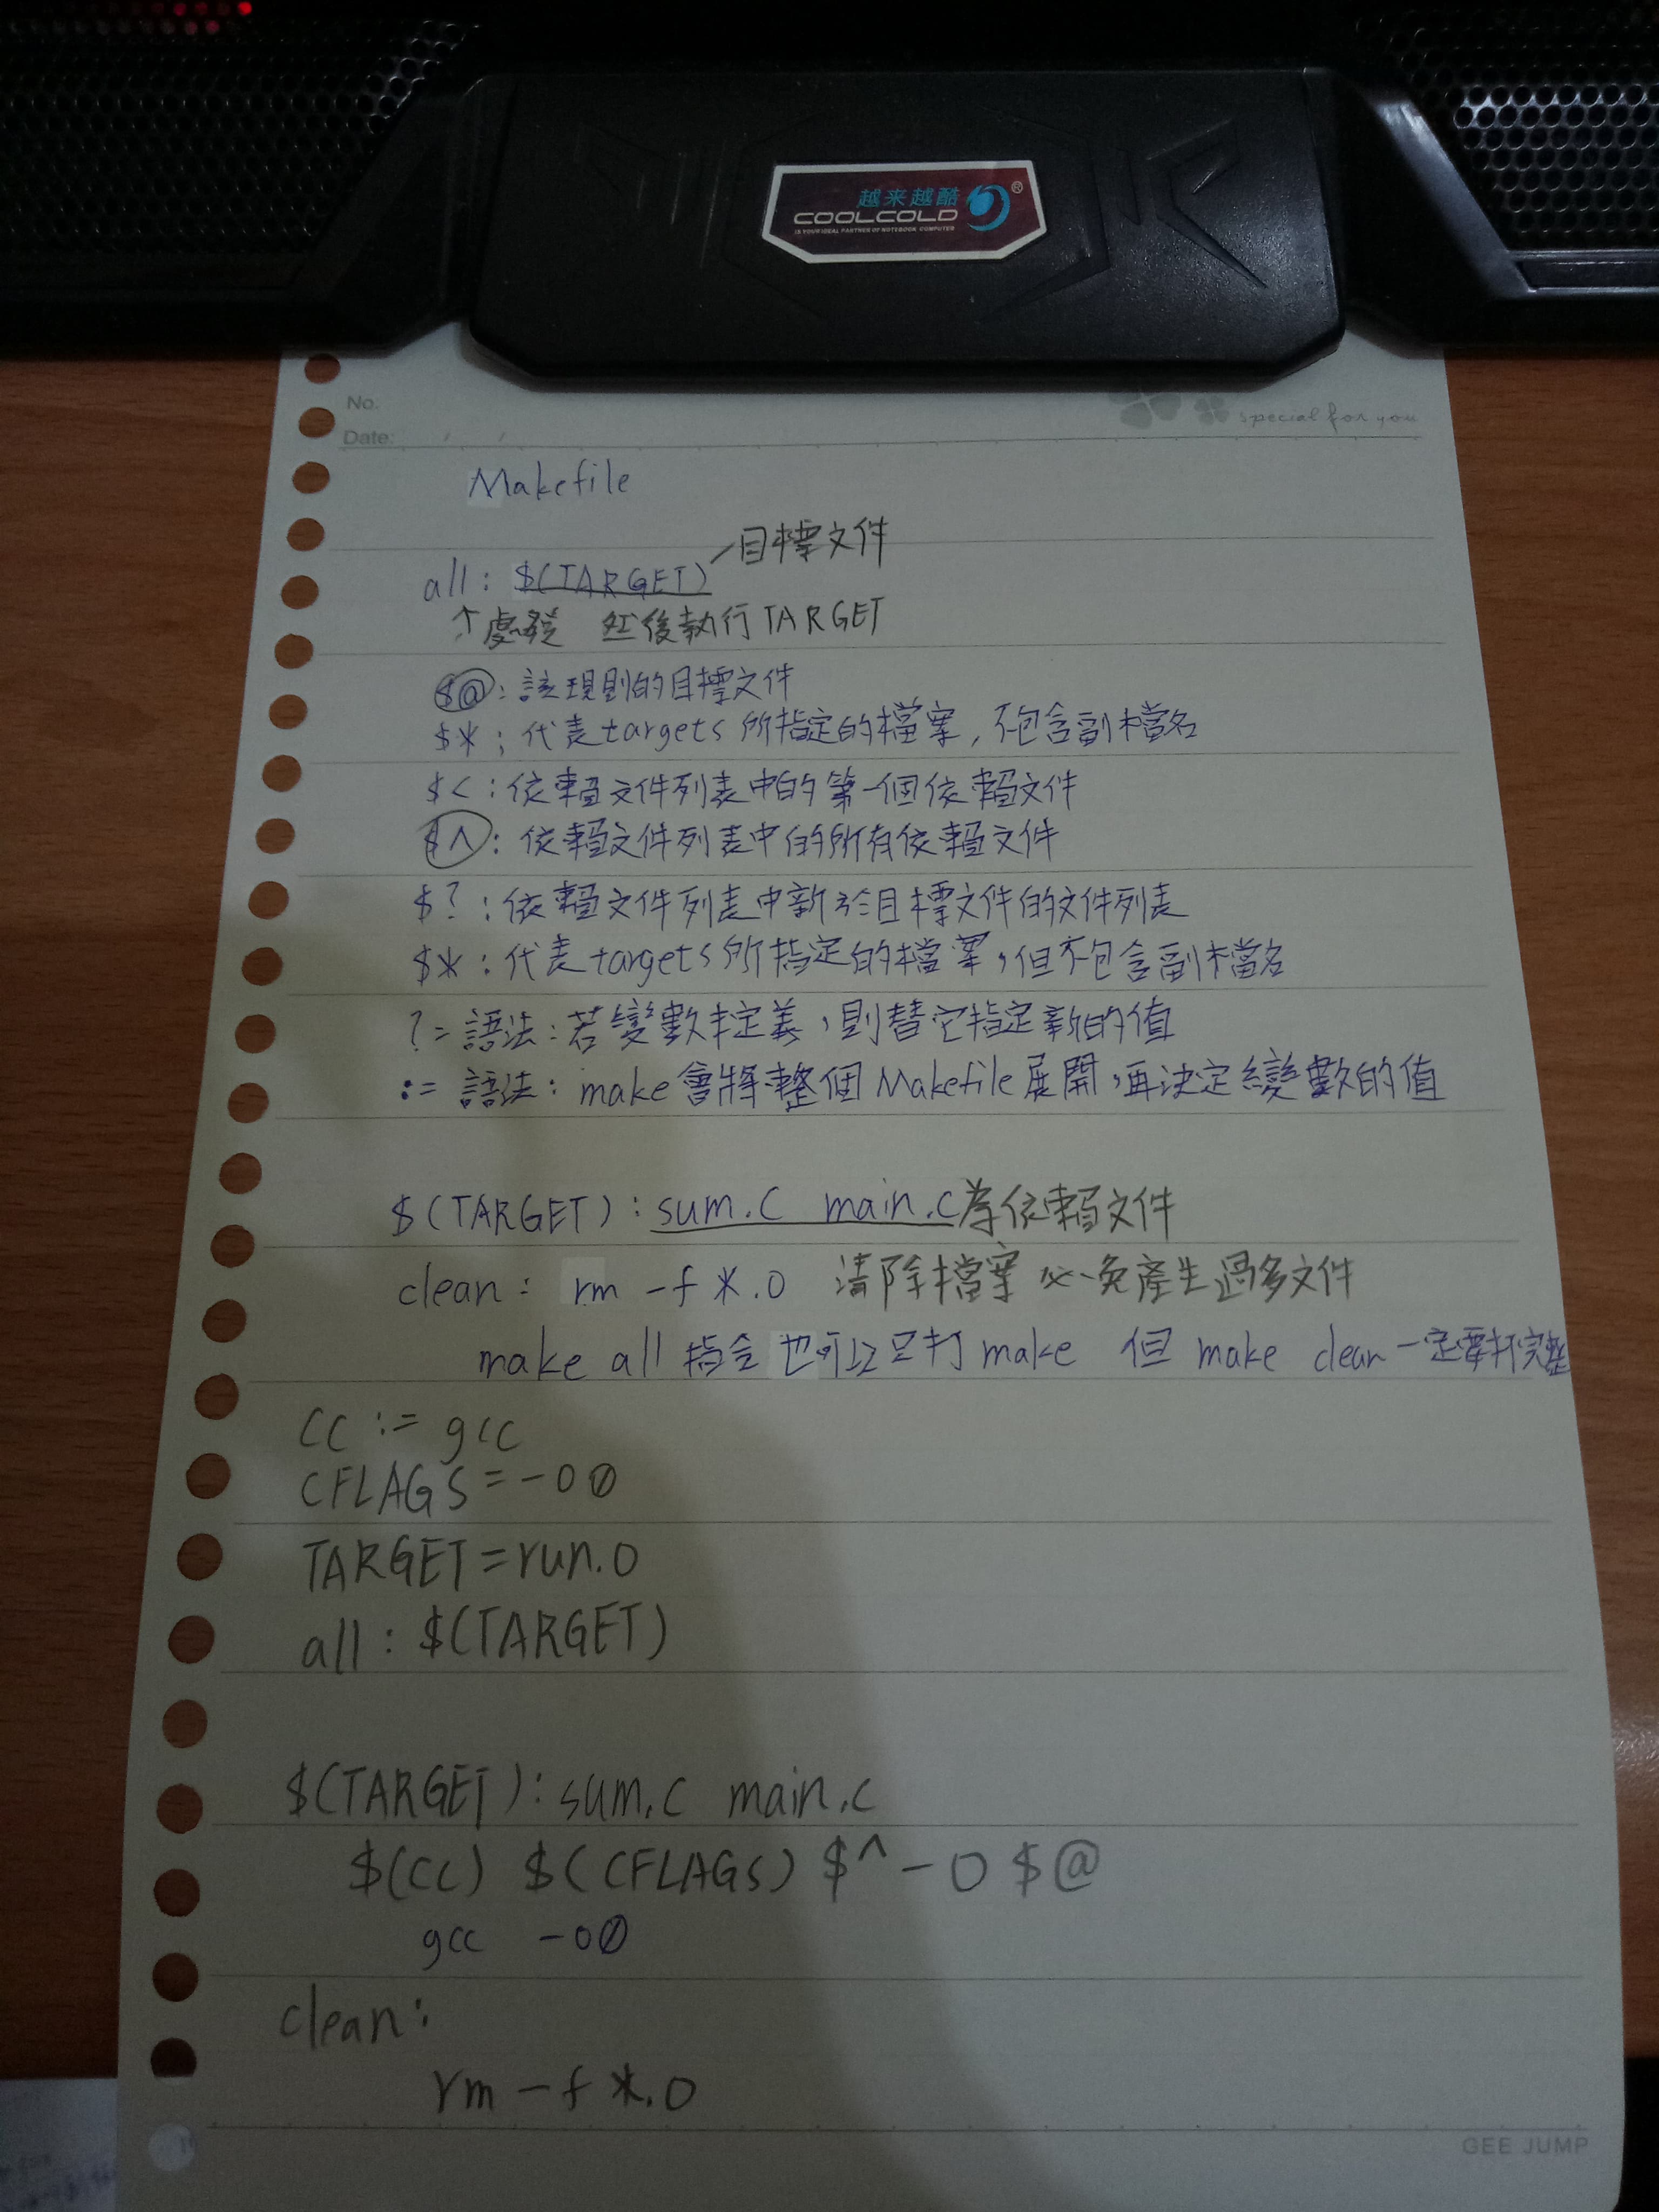 越来越酷
COOLCOLD ®
IS YOUR IDEAL PARTNER OF NOTEBOOK COMPUTER
No.
Date: / /
special for you
Makefile
目標文件
all: $(TARGET)
↑處發 然後執行TARGET
$@:該規則的目標文件
$*:代表targets所指定的檔案,不包含副檔名
$<:依賴文件列表中的第一個依賴文件
$^:依賴文件列表中的所有依賴文件
$?:依賴文件列表中新於目標文件的文件列表
$*:代表targets所指定的檔案,但不包含副檔名
?=語法:若變數未定義,則替它指定新的值
:=語法:make會將整個Makefile展開,再決定變數的值
$(TARGET):sum.c main.c為依賴文件
clean: rm -f *.o 清除檔案 以免產生過多文件
make all 指令也可以只打make 但 make clean一定要打完整
CC := gcc
CFLAGS=-O0
TARGET=run.o
all: $(TARGET)
$(TARGET):sum.c main.c
$(CC) $(CFLAGS) $^ -o $@
gcc -O0
clean:
rm -f *.o
GEE JUMP